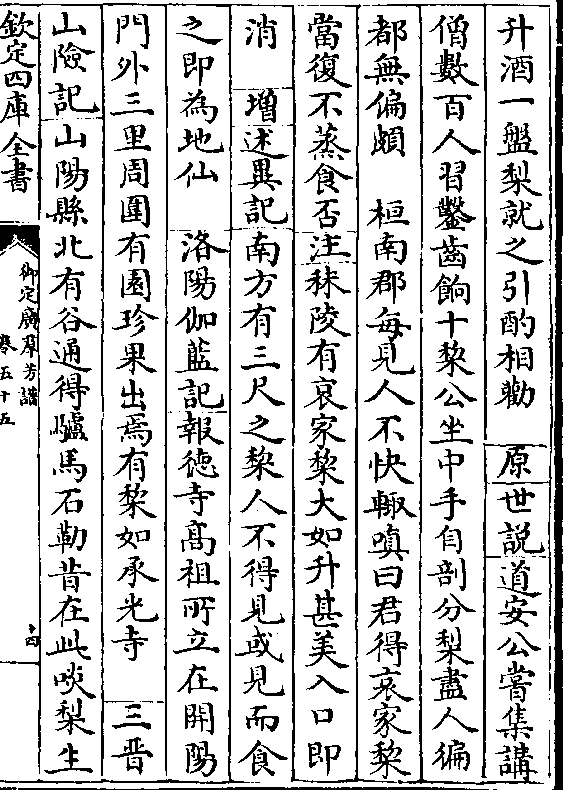 升酒一盤梨就之引酌相勸　原世説道安公嘗集講
僧數百人習鑿齒餉十棃公坐中手自剖分梨盡人徧
都無偏頗　桓南郡每見人不快輙嗔曰君得哀家棃
當復不蒸食否注秣陵有哀家棃大如升甚美入口即
消　增述異記南方有三尺之棃人不得見或見而食
之即為地仙　洛陽伽藍記報徳寺髙祖所立在開陽
門外三里周圍有園珍果出焉有棃如承光寺　三晋
山險記山陽縣北有谷通得驢馬石勒昔在此啖梨生
欽定四庫全書
御定廣羣芳譜
卷五十五
十四